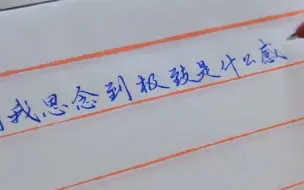 我思念到极致是什么感